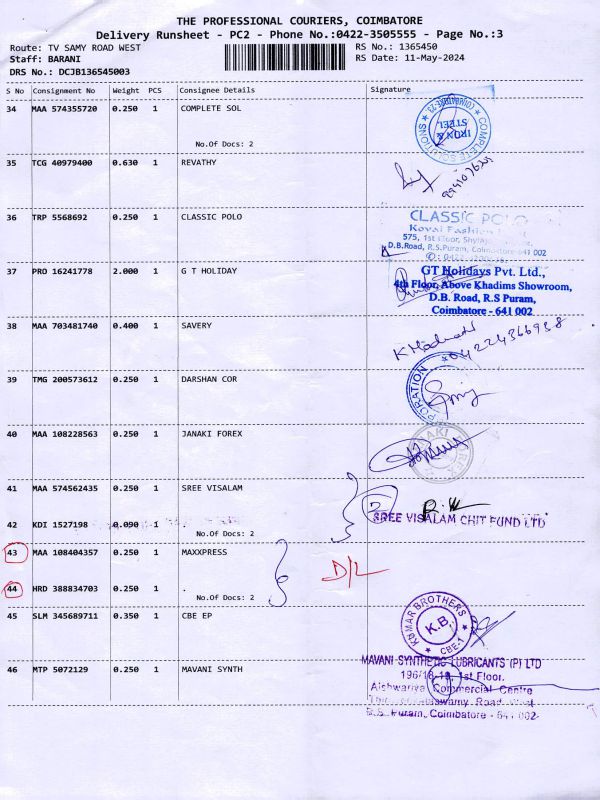 THE PROFESSIONAL COURIERS, COIMBATORE
Delivery Runsheet - PC2 - Phone No.:0422-3505555 - Page No.:3
Route: TV SAMY ROAD WEST
Staff: BARANI
DRS No.: DCJB136545003
RS No.: 1365450
RS Date: 11-May-2024
S No Consignment No Weight PCS Consignee Details Signature
34 MAA 574355720 0.250 1 COMPLETE SOL
No.Of Docs: 2
COMPLETE SOLUTIONS
IRON & STEEL
35 TCG 40979400 0.630 1 REVATHY
36 TRP 5568692 0.250 1 CLASSIC POLO
CLASSIC POLO
Koval Fashion
575, 1st Floor,
D.B.Road, R.S.Puram, Coimbatore-641 002
37 PRO 16241778 2.000 1 G T HOLIDAY
GT Holidays Pvt. Ltd.,
4th Floor, Above Khadims Showroom,
D.B. Road, R.S Puram,
Coimbatore - 641 002
38 MAA 703481740 0.400 1 SAVERY
04224366938
39 TMG 200573612 0.250 1 DARSHAN COR
40 MAA 108228563 0.250 1 JANAKI FOREX
41 MAA 574562435 0.250 1 SREE VISALAM
42 KDI 1527198 0.090 1
No.Of Docs: 2
SREE VISALAM CHIT FUND LTD
43 MAA 108404357 0.250 1 MAXXPRESS
D/L
44 HRD 388834703 0.250 1 .
No.Of Docs: 2
45 SLM 345689711 0.350 1 CBE EP
KUMAR BROTHERS
K.B.
CBE-1
46 MTP 5072129 0.250 1 MAVANI SYNTH
MAVANI SYNTHETIC LUBRICANTS (P) LTD
196/18-19, 1st Floor.
Aishwariya Commercial Centre
R.S. Puram, Coimbatore - 641 002